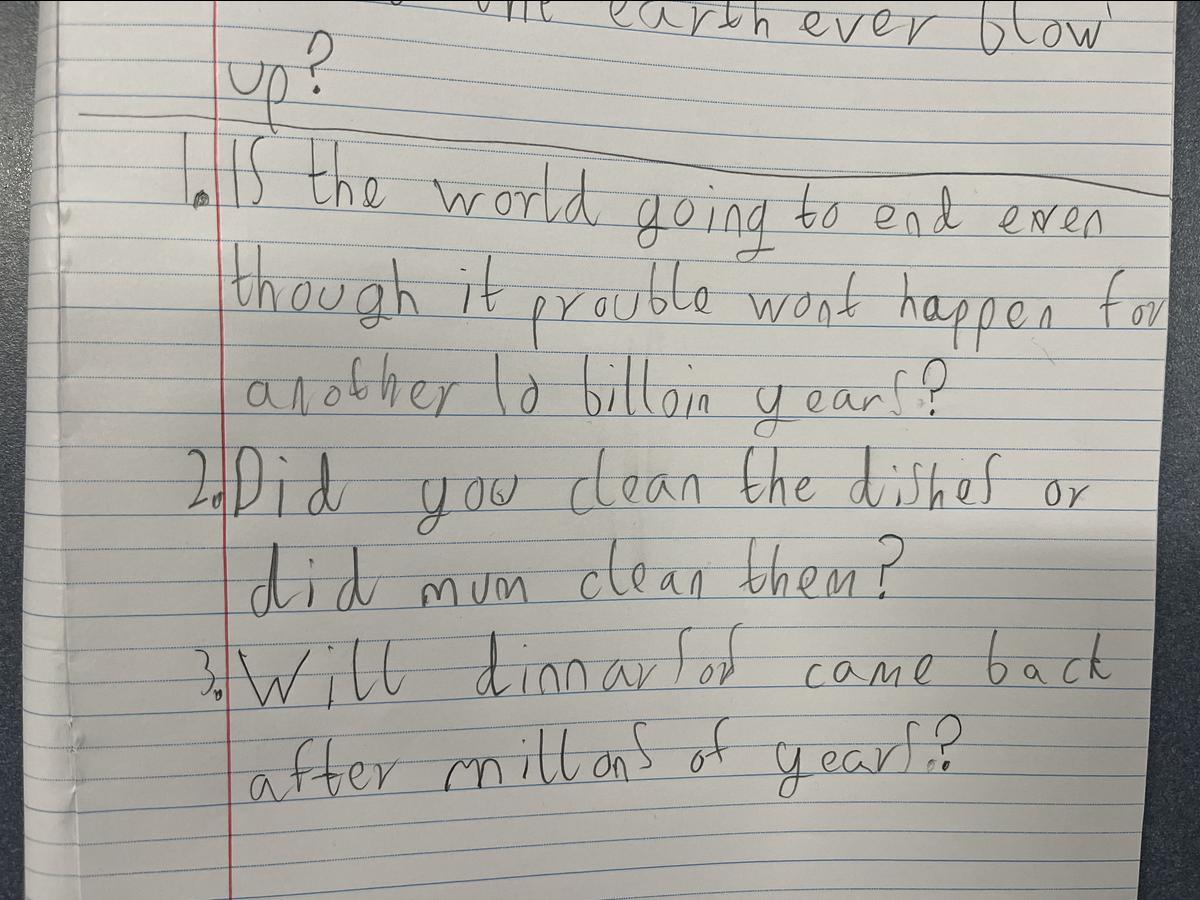 the earth ever blow
up?
1. Is the world going to end even
though it prouble wont happen for
another 10 billoin years?
2. Did you clean the dishes or
did mum clean them?
3. Will dinnarsors came back
after millons of years?